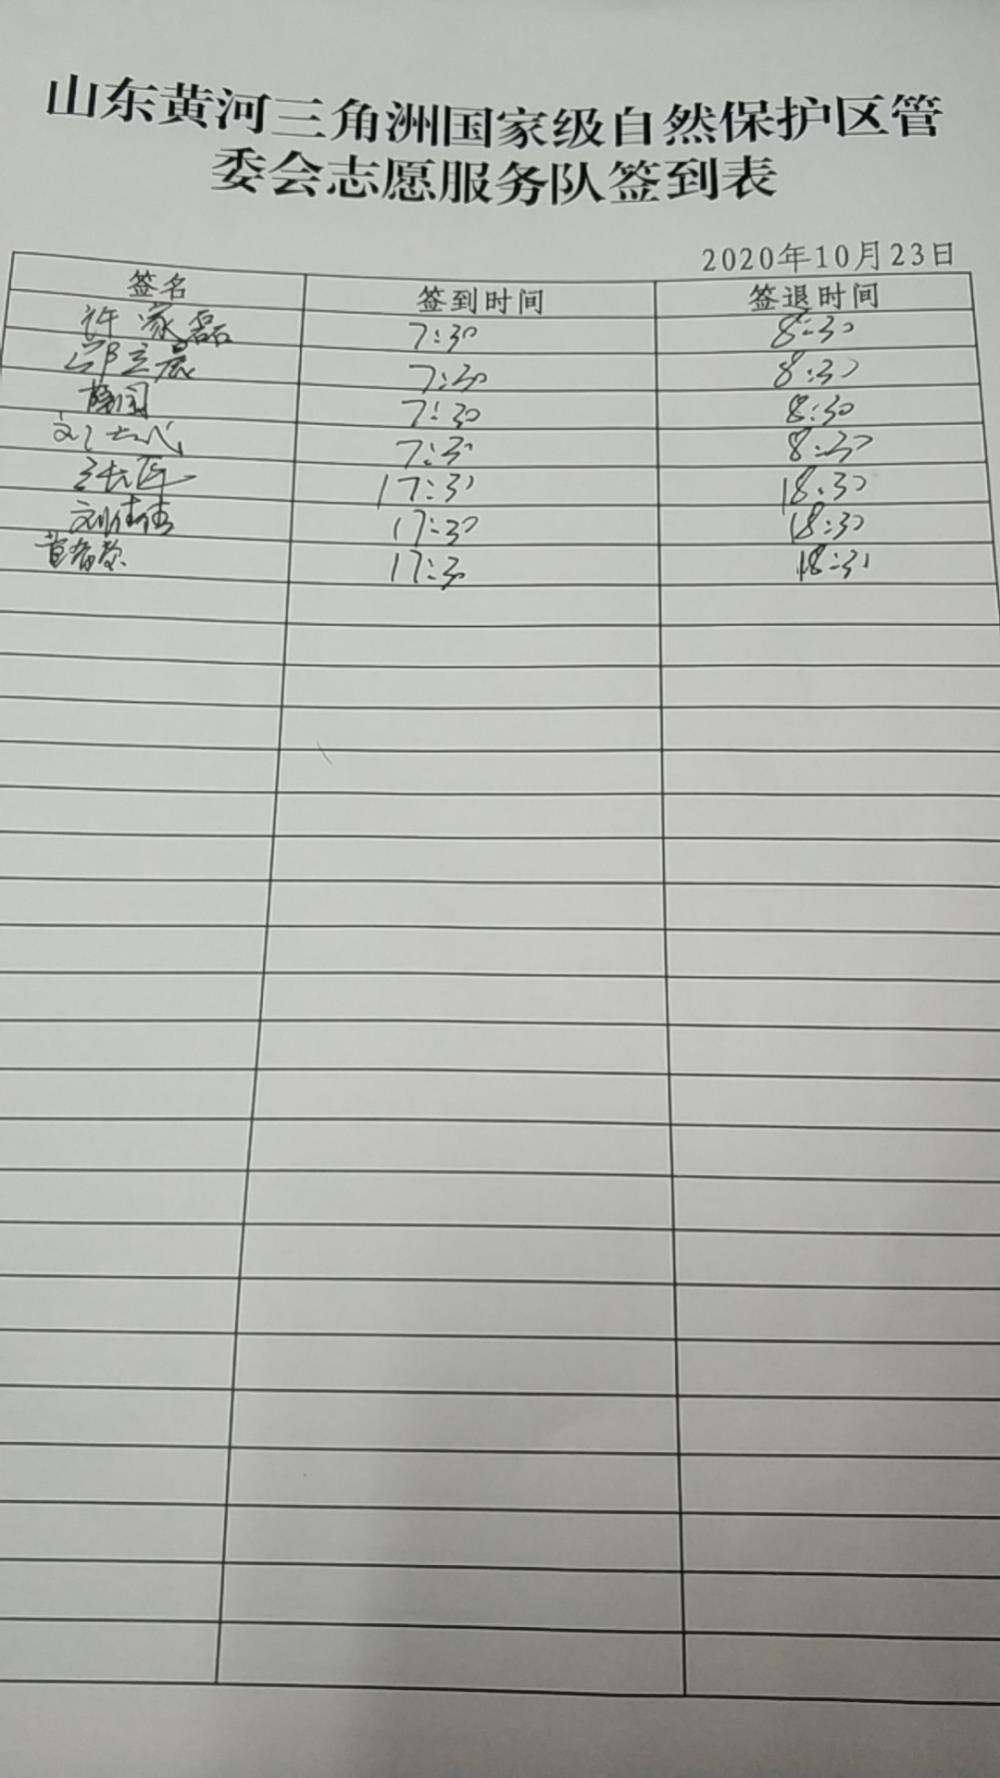 山东黄河三角洲国家级自然保护区管
委会志愿服务队签到表
2020年10月23日
签名 签到时间 签退时间
许家磊 7:30 8:30
7:30 8:30
7:30 8:30
7:30 8:30
17:30 18:30
刘佳佳 17:30 18:30
17:30 18:30